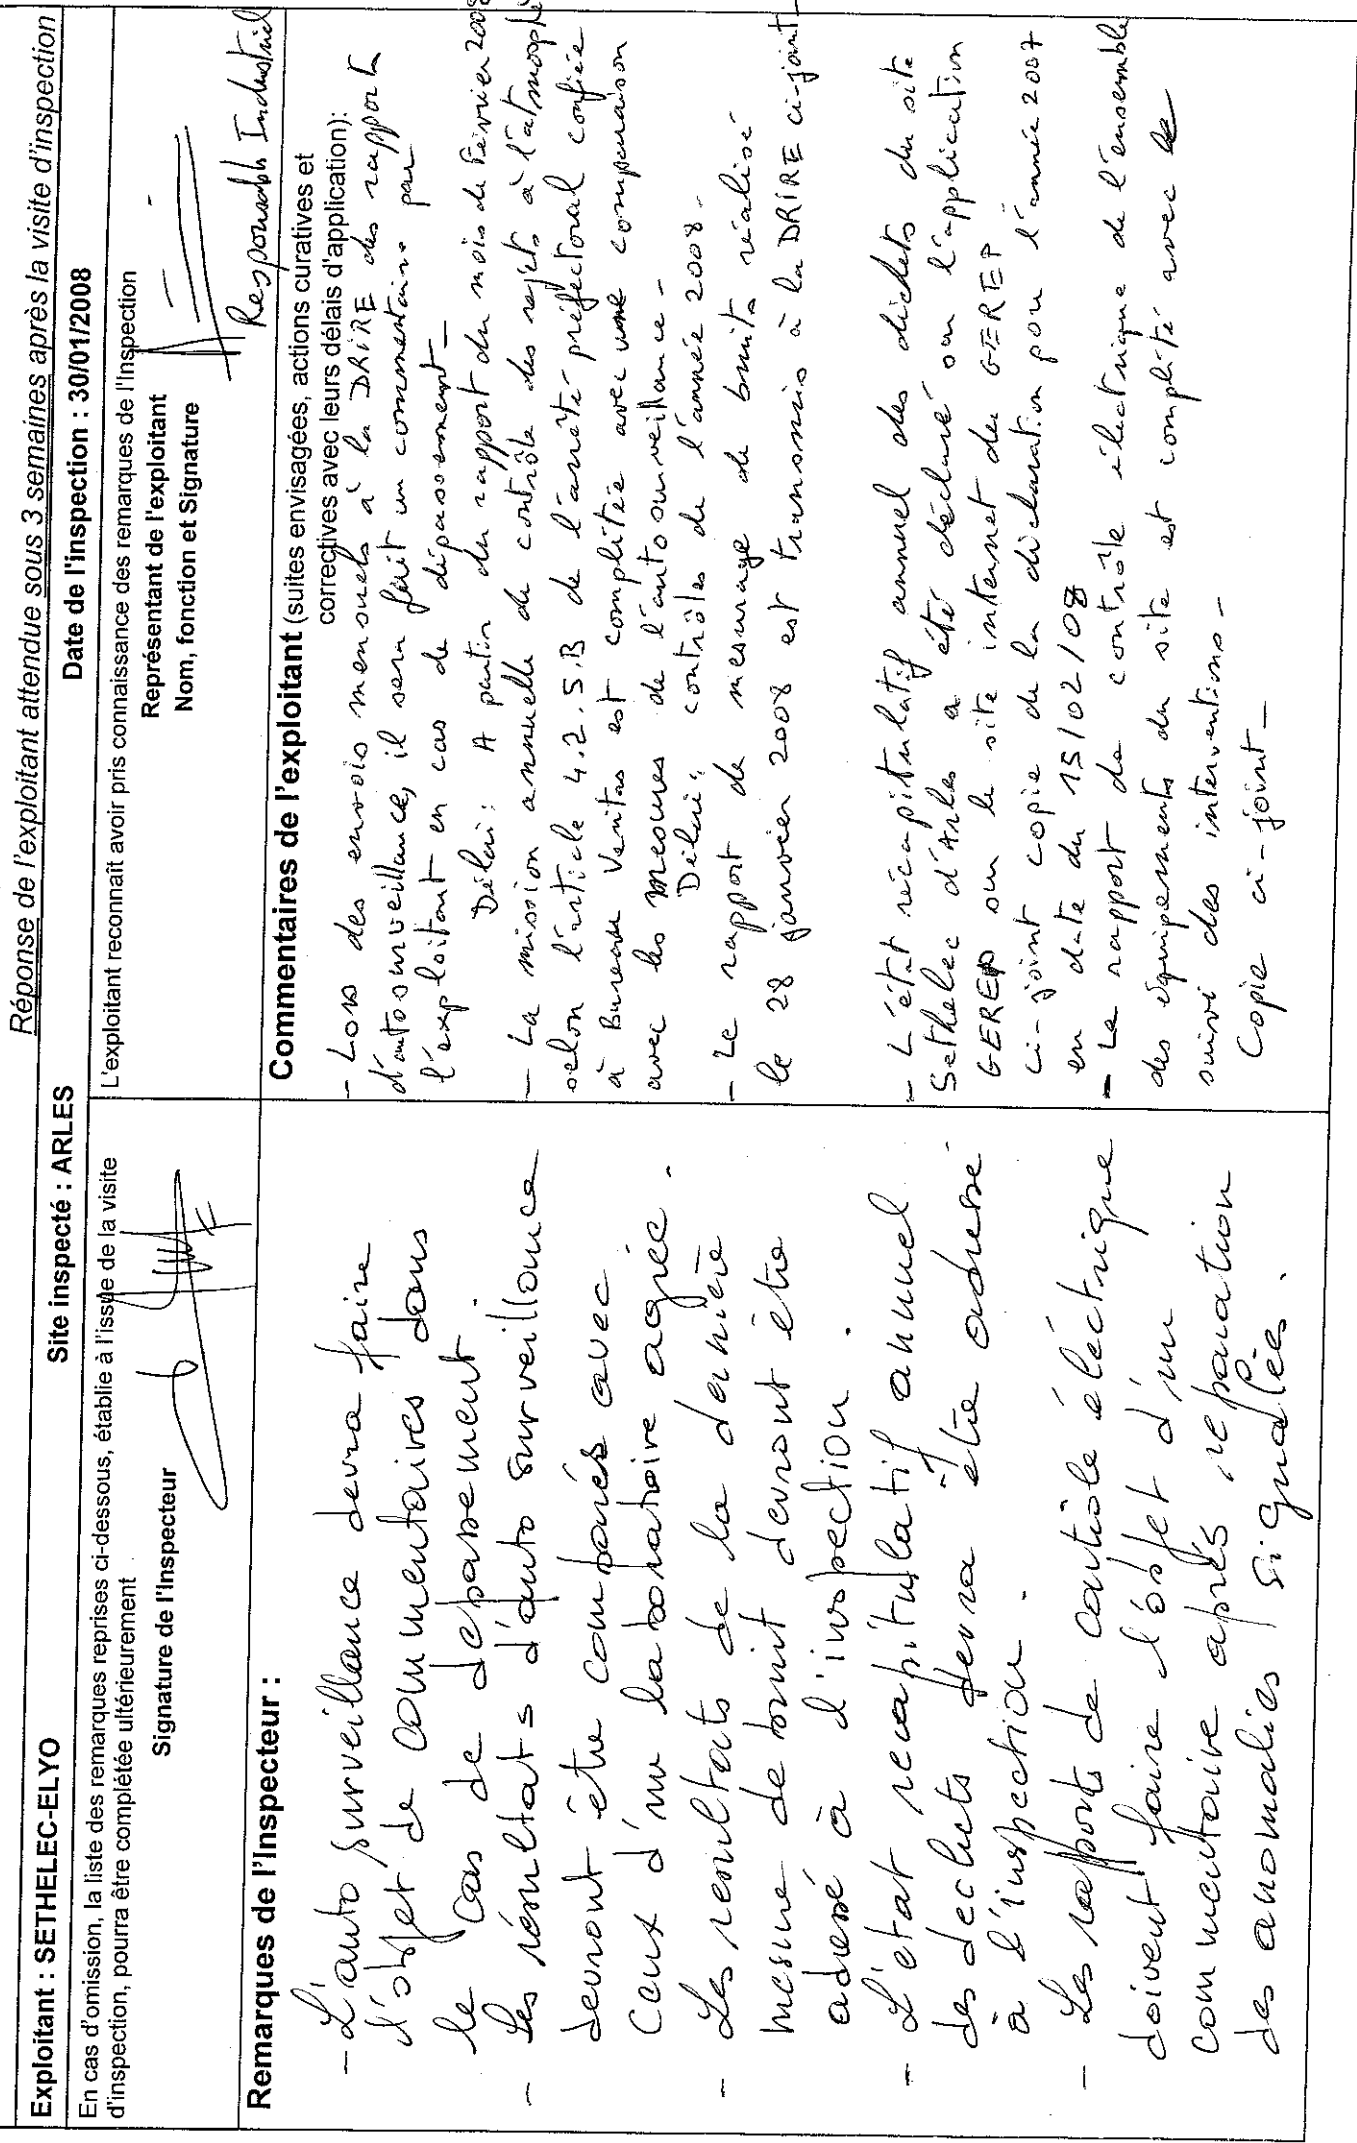 Réponse de l'exploitant attendue sous 3 semaines après la visite d'inspection
Exploitant : SETHELEC-ELYO
Site inspecté : ARLES
Date de l'inspection : 30/01/2008
En cas d'omission, la liste des remarques reprises ci-dessous, établie à l'issue de la visite
d'inspection, pourra être complétée ultérieurement
Signature de l'Inspecteur
L'exploitant reconnaît avoir pris connaissance des remarques de l'Inspection
Représentant de l'exploitant
Nom, fonction et Signature
Responsable Industriel
Remarques de l'Inspecteur :
- L'auto surveillance devra faire
l'objet de commentaires dans
le cas de depassement.
- Les résultats d'auto surveillance
devront être comparés avec
ceux d'un laboratoire agréé.
- Les resultats de la dernière
mesure de bruit devront être
adressé à l'inspection.
- L'état recapitulatif annuel
des dechets devra être adressé
à l'inspection.
- Les rapports de contrôle électrique
doivent faire l'objet d'un
commentaire après reparation
des anomalies signalées.
Commentaires de l'exploitant (suites envisagées, actions curatives et
correctives avec leurs délais d'application):
- Lors des envois mensuels à la DRIRE des rapports
d'autosurveillance, il sera fait un commentaire par
l'exploitant en cas de dépassement-
Délai: A partir du rapport du mois de Février 2008
- La mission annuelle de contrôle des rejets à l'atmosphè
selon l'article 4.2.5.B de l'arrêté préfectoral confiée
à Bureau Veritas est complétée avec une comparaison
avec les mesures de l'autosurveillance-
Délai: contrôles de l'année 2008-
- Le rapport de mesurage de bruits réalisé
le 28 janvier 2008 est transmis à la DRIRE ci-joint-
- L'état récapitulatif annuel des déchets du site
Sethelec d'Arles a été déclaré sur l'application
GEREP sur le site internet de GEREP
ci-joint copie de la déclaration pour l'année 2007
en date du 15/02/08
- Le rapport de contrôle électrique de l'ensemble
des équipements du site est complété avec le
suivi des interventions-
Copie ci-joint-